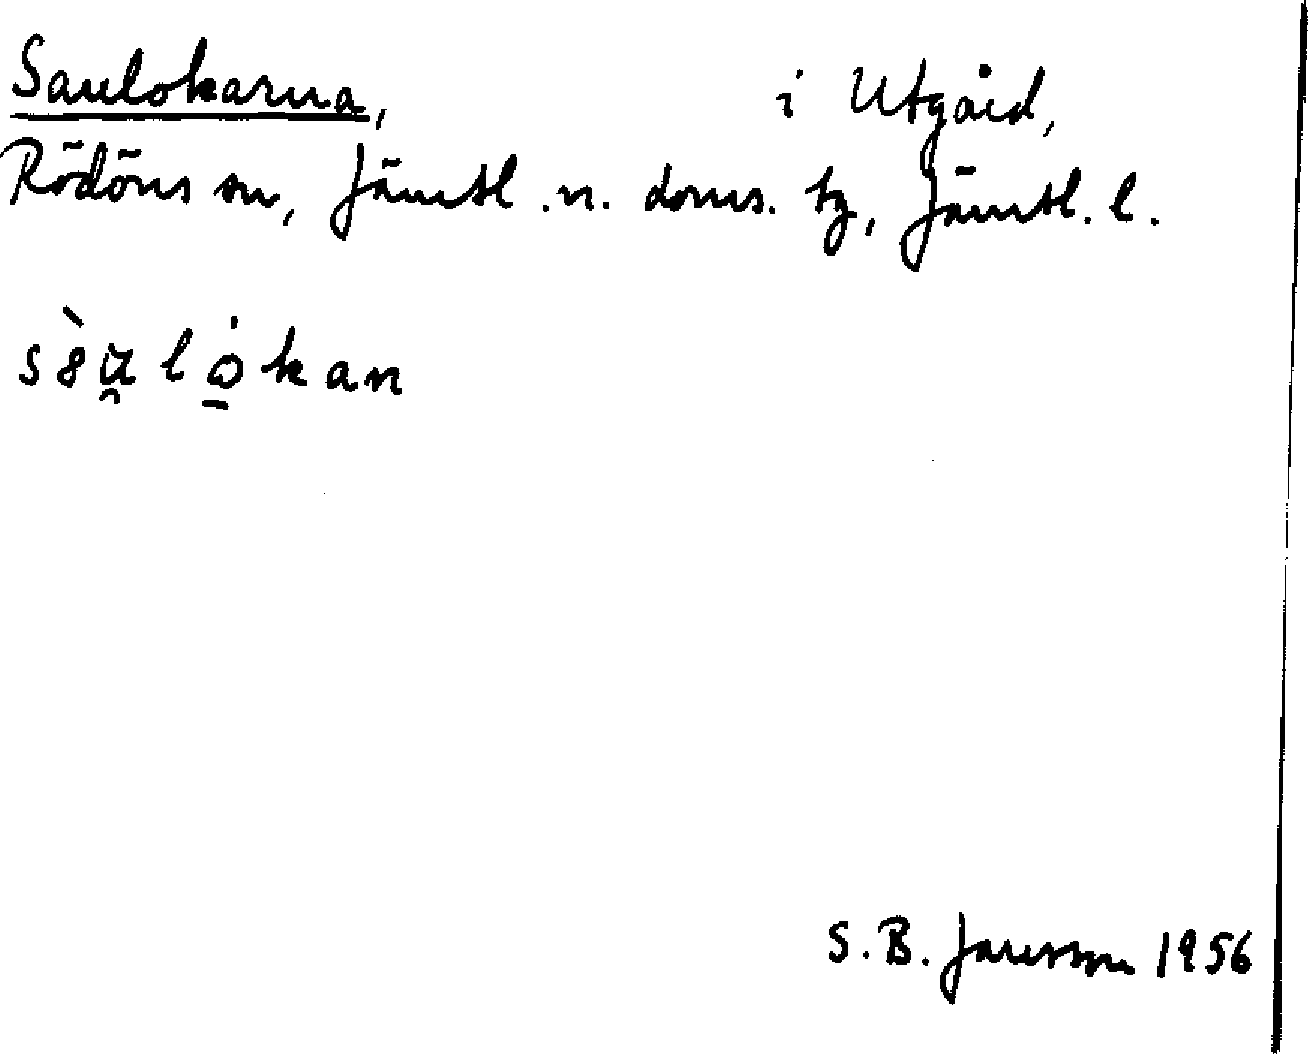 Saulokarna, i Utgård,
Rödöns sn, Jämtl. n. doms. tg, Jämtl. l.
s8̀u̯lo̱kan
S. B. Jansson 1956